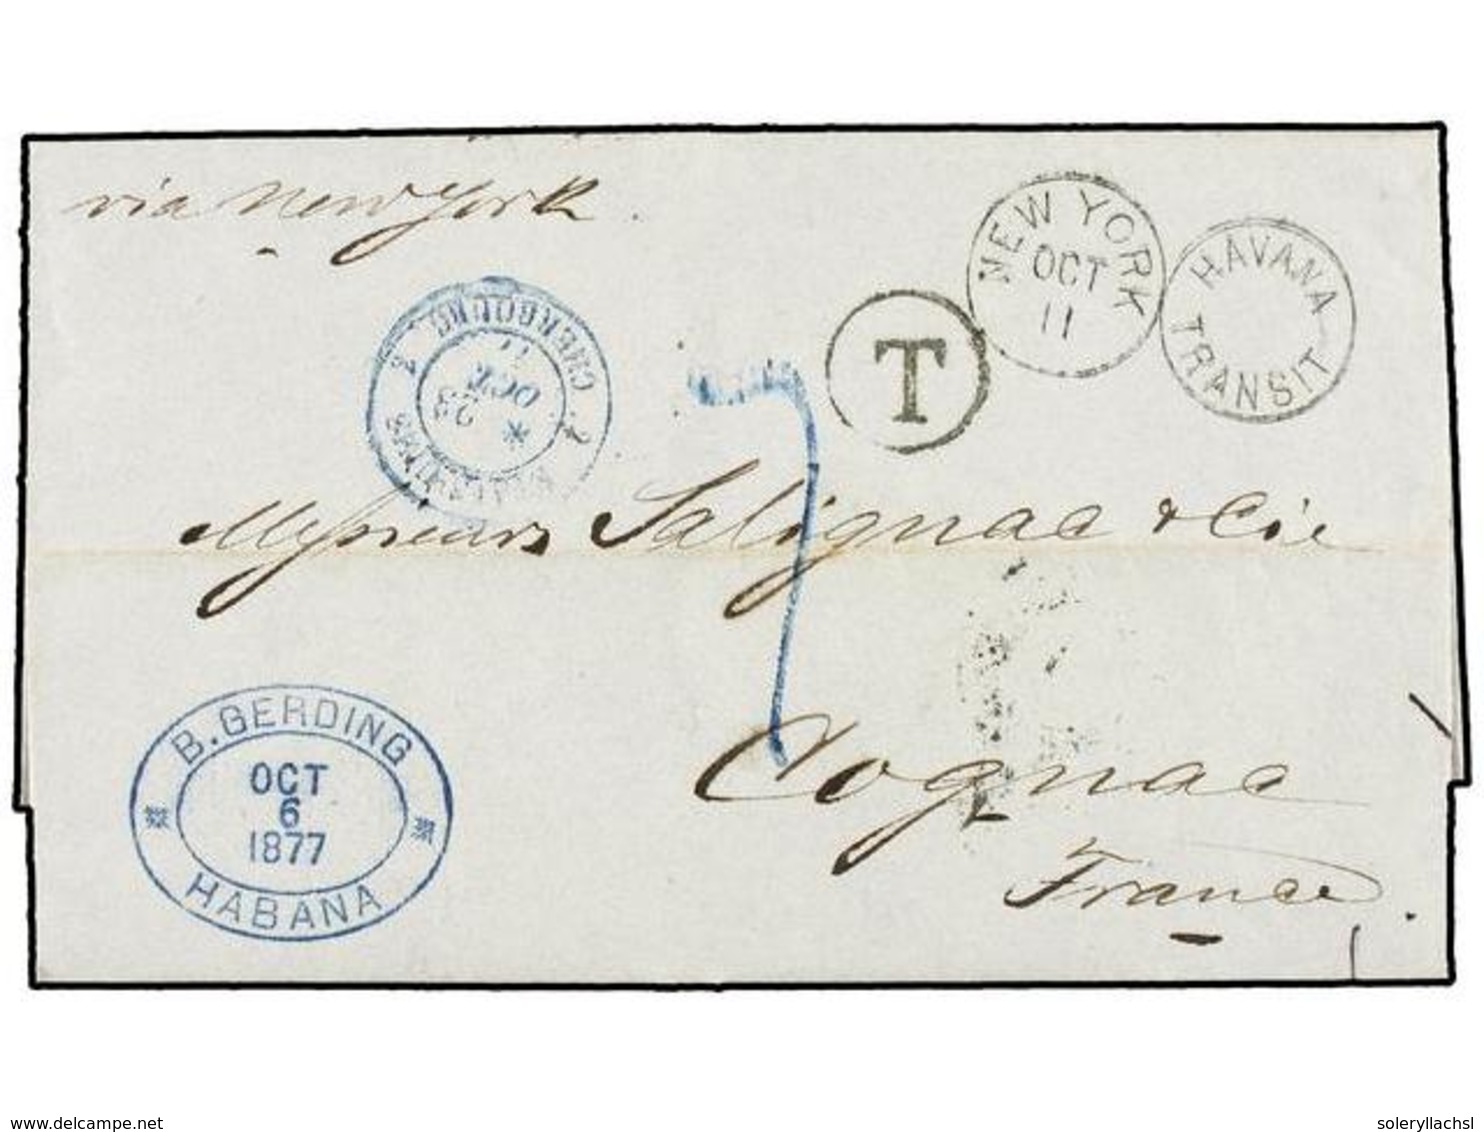 via New York.
NEW YORK
OCT
11
HAVANA
TRANSIT
T
CHERBOURG
23
OCT
7
Messieurs Salignac & Cie
Cognac
France.
B. GERDING
OCT
6
1877
HABANA
www.delcampe.net
soleryllachsl